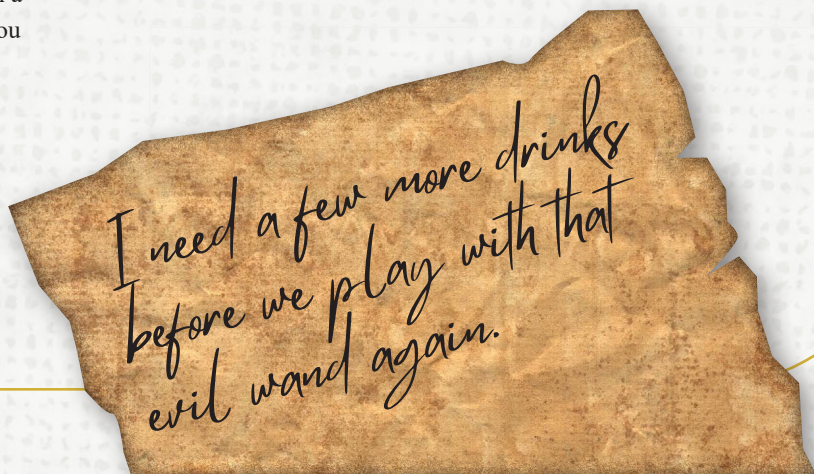 ou
I need a few more drinks
before we play with that
evil wand again.